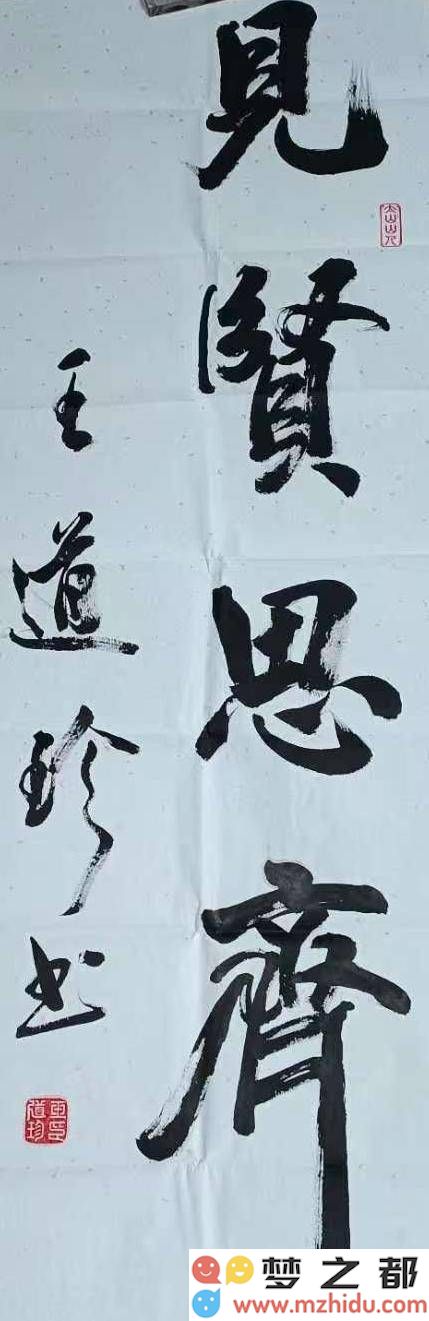 見賢思齊
王道珍書
王印道珍
梦之都
www.mzhidu.com